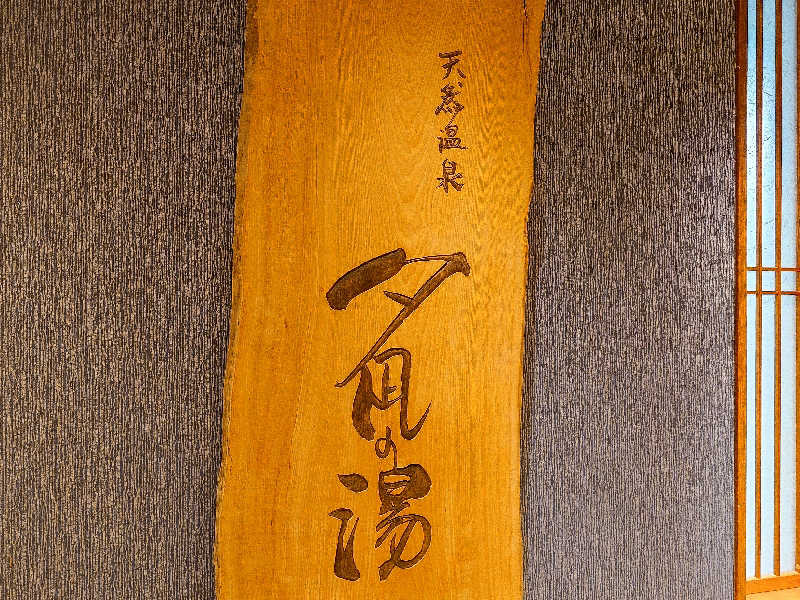 天然温泉
夕凪の湯